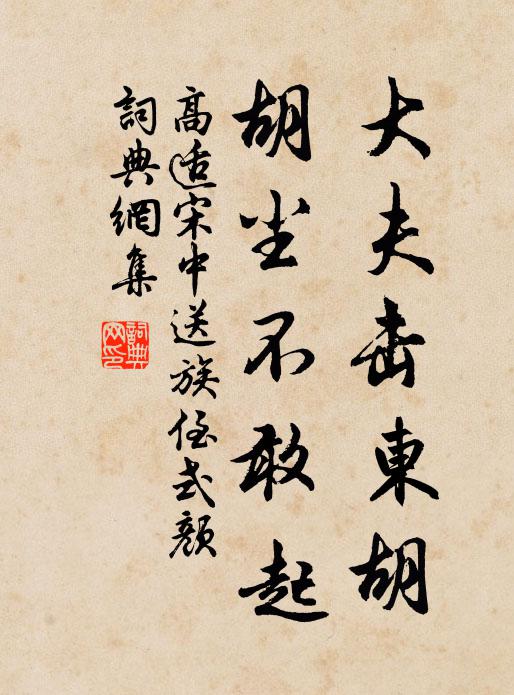 大夫击東胡
胡尘不敢起
高适宋中送族侄式颜
詞典網集
詞典网印